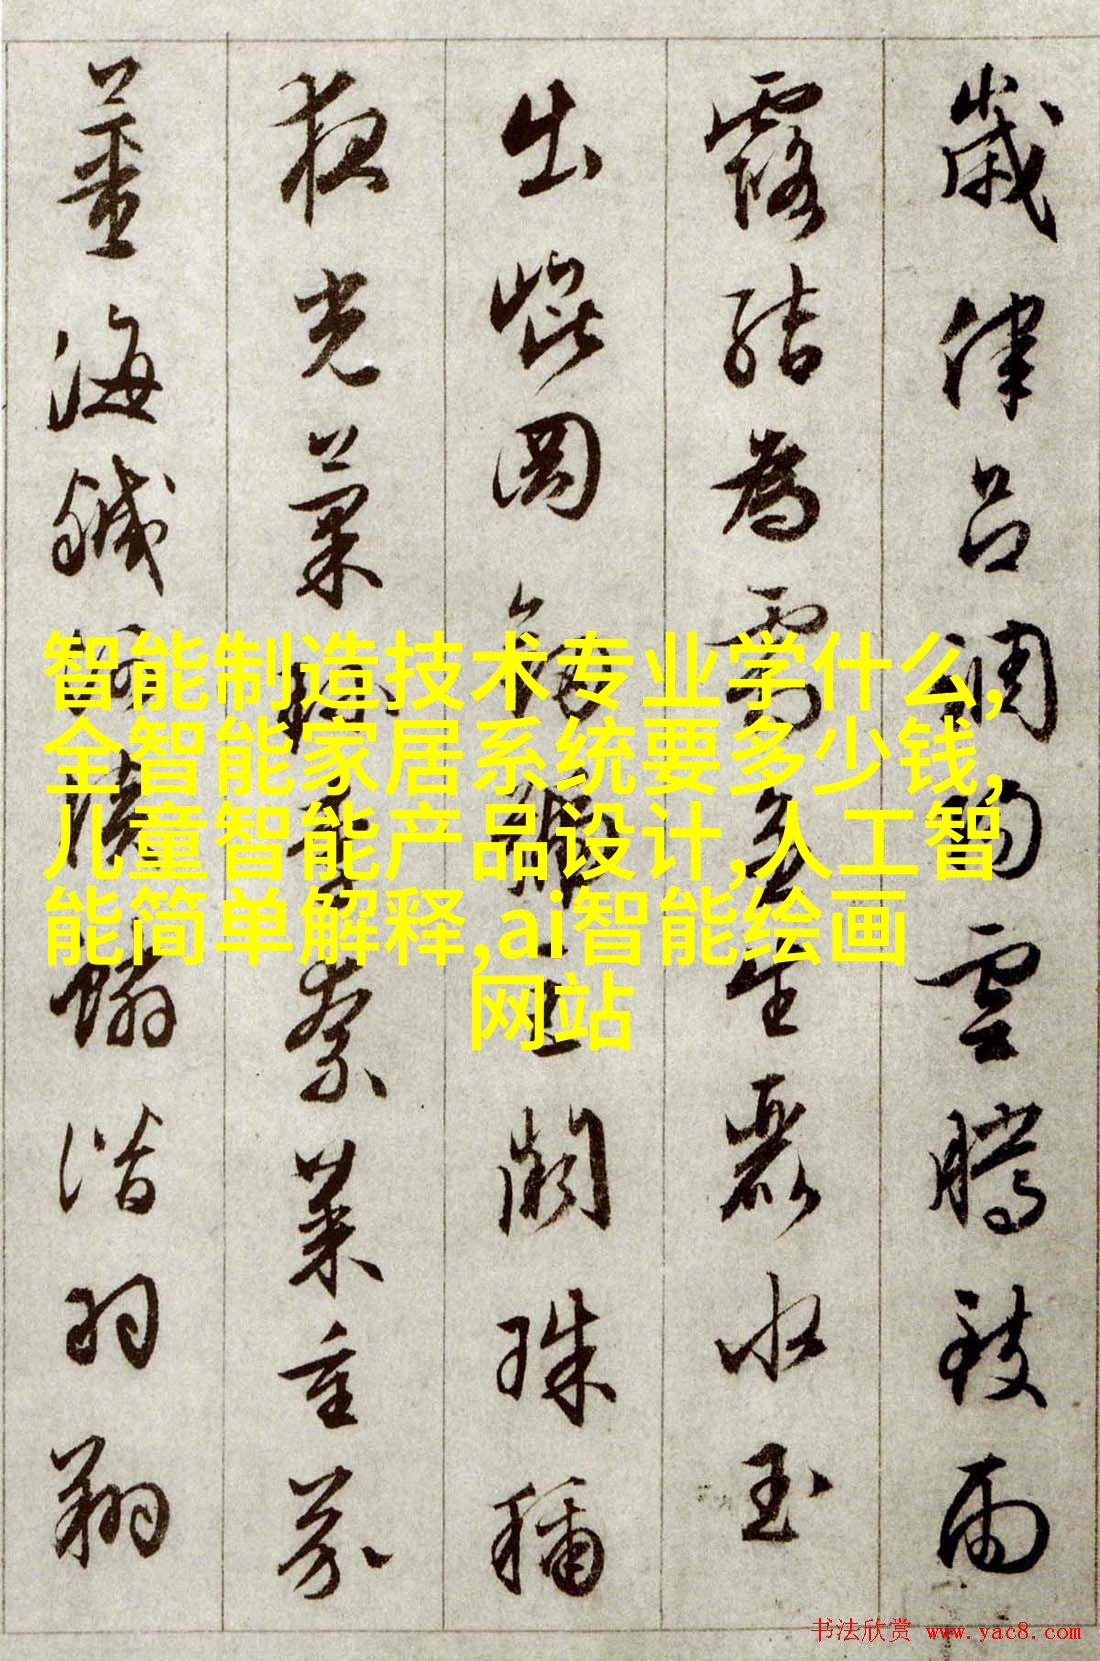 歲律呂調陽雲騰致雨
露結為霜金生麗水玉
出崐岡劍號巨闕珠稱
夜光菓珍李柰菜重芥
薑海鹹河淡鱗潛羽翔
智能制造技术专业学什么,
全智能家居系统要多少钱,
儿童智能产品设计,人工智
能简单解释,ai智能绘画
网站
书法欣赏 www.yac8.com